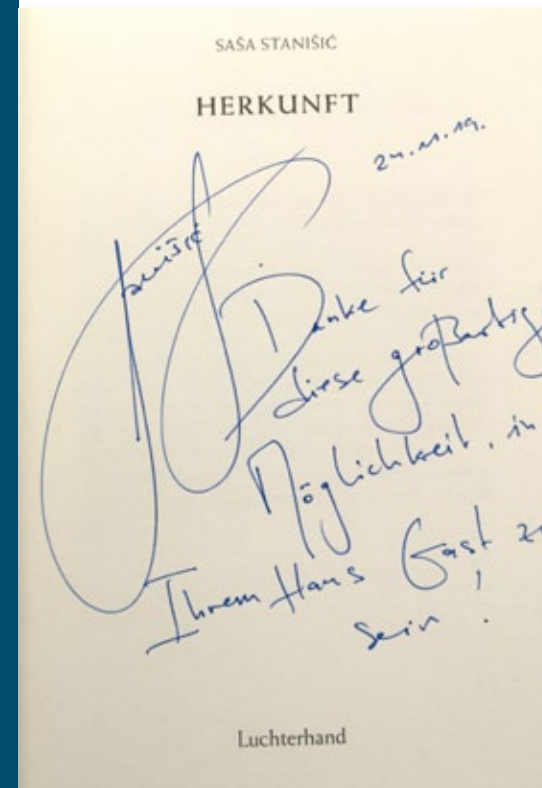 SAŠA STANIŠIĆ
HERKUNFT
24.11.19.
Danke für
diese großartig
Möglichkeit, in
Ihrem Haus Gast zu
sein!
Luchterhand